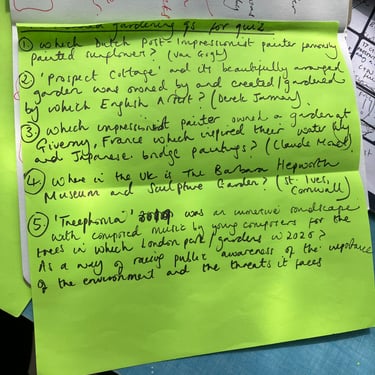 gardening Qs for quiz
① which Dutch Post-Impressionist painter famously
painted sunflowers? (Van Gogh)
② 'Prospect Cottage' and it's beautifully arranged
garden was owned by and created/gardened
by which English Artist? (Derek Jarman)
③ which impressionist painter owned a garden at
Giverny, France which inspired their water lily
and Japanese bridge paintings? (Claude Monet)
④ Where in the UK is The Barbara Hepworth
Museum and Sculpture Garden? (St. Ives,
Cornwall)
⑤ 'Treephonia' was an immersive soundscape
with composed music by young composers for the
trees in which London park/gardens in 2020?
As a way of raising public awareness of the importance
of the environment and the threats it faces